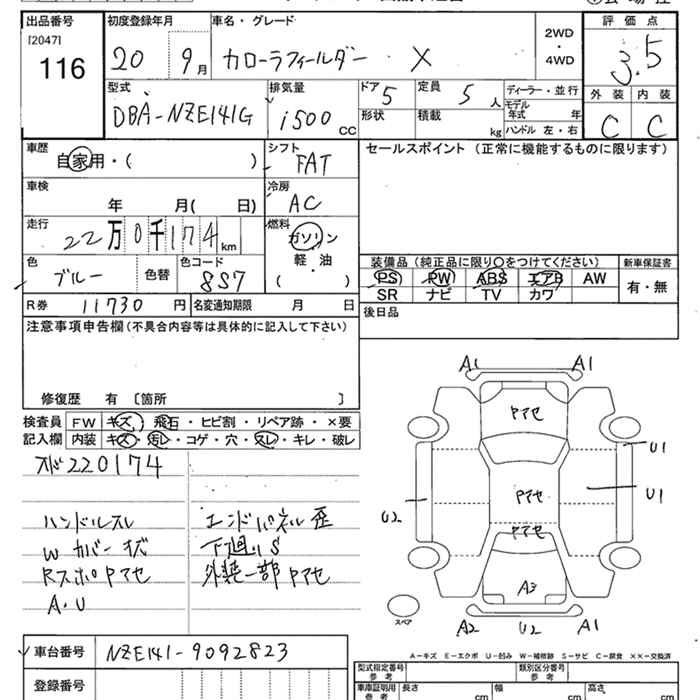 出品番号
[2047]
116
初度登録年月
20 9月
車名・グレード
カローラフィールダー X
2WD
・
4WD
評価点
3.5
外装 内装
C C
型式
DBA-NZE141G
排気量
1500 CC
ドア 5
形状
定員 5 人
積載 kg
ディーラー・並行
モデル年式 年
ハンドル 左・右
車歴
自家用・( )
シフト
FAT
セールスポイント (正常に機能するものに限ります)
車検
年 月( 日)
冷房
AC
走行
22万0千174km
燃料
ガソリン
軽・油
( )
色
ブルー
色替
色コード
8S7
装備品 (純正品に限り○をつけてください)
新車保証書
PS PW ABS エアB AW
SR ナビ TV カワ
有・無
R券 11730 円
名変通知期限 月 日
後日品
注意事項申告欄 (不具合内容等は具体的に記入して下さい)
修復歴 有 〔箇所 〕
検査員 FW キズ・飛石・ヒビ割・リペア跡・×要
記入欄 内装 キズ・汚レ・コゲ・穴・スレ・キレ・破レ
220174
ハンドルスレ
Wカバーキズ
RスポPヤセ
A・U
エンドパネル歪
下廻りS
外装一部Pヤセ
A1 A1
Pヤセ
U1
Pヤセ
U1
U2
Pヤセ
A3
スペア
A2 U2 A1
A-キズ E-エクボ U-凹み W-補修跡 S-サビ C-腐食 ××-交換済
車台番号
NZE141-9092823
登録番号
型式指定番号
参考
類別区分番号
参考
車庫証明用
参考
長さ cm
幅 cm
高さ cm